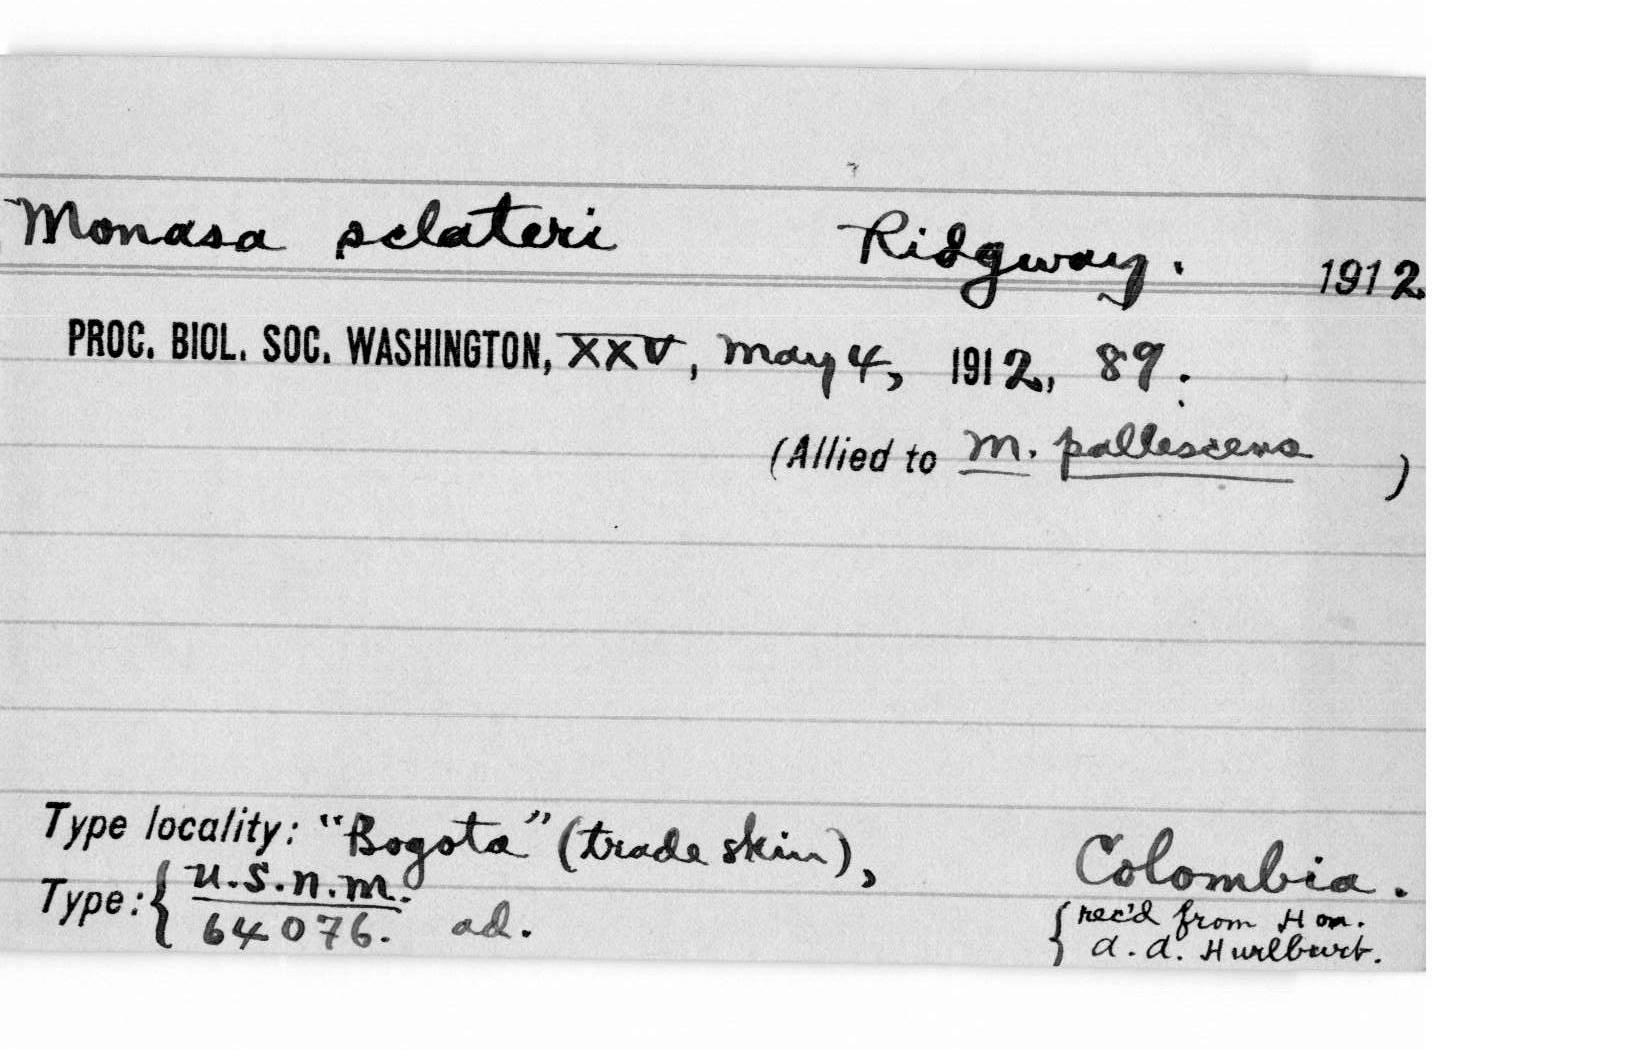 Monasa sclateri Ridgway. 1912.
PROC. BIOL. SOC. WASHINGTON, XXV, May 4, 1912, 89.
(Allied to M. pallescens )
Type locality: "Bogota" (trade skin), Colombia.
Type: { U.S.N.M. 64076. ad.
{ rec'd from Hon.
A. A. Hurlburt.